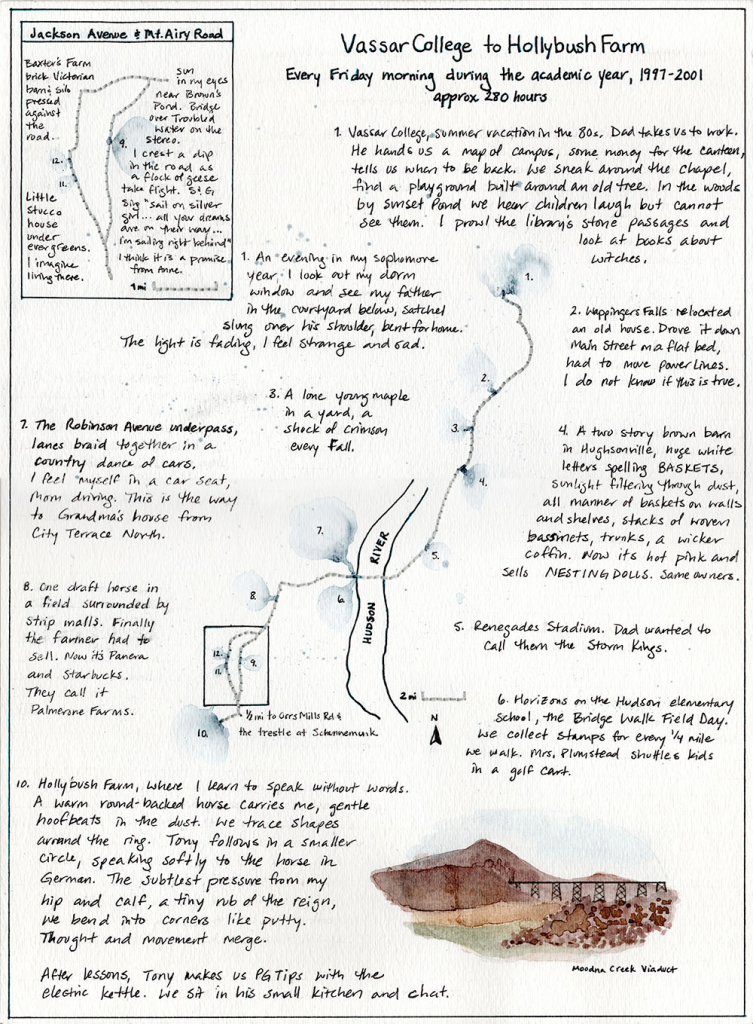 Jackson Avenue & Mt. Airy Road
Baxter's Farm
brick Victorian
barn & silo
pressed
against
the
road.
12.
11.
Little
stucco
house
under
evergreens.
I imagine
living there.
sun
in my eyes
near Brown's
Pond. Bridge
over Troubled
Water on the
stereo.
9.
I crest a dip
in the road as
a flock of geese
take flight. S&G
sing "sail on silver
girl... all your dreams
are on their way...
I'm sailing right behind"
I think it is a promise
from Anne.
1 mi
Vassar College to Hollybush Farm
Every Friday morning during the academic year, 1997-2001
approx 280 hours
1. Vassar College, summer vacation in the 80s. Dad takes us to work.
He hands us a map of campus, some money for the canteen,
tells us when to be back. We sneak around the chapel,
find a playground built around an old tree. In the woods
by Sunset Pond we hear children laugh but cannot
see them. I prowl the library's stone passages and
look at books about
witches.
1. An evening in my sophomore
year. I look out my dorm
window and see my father
in the courtyard below, satchel
slung over his shoulder, bent for home.
The light is fading, I feel strange and sad.
1.
2. Wappingers Falls relocated
an old house. Drove it down
Main Street on a flat bed,
had to move power lines.
I do not know if this is true.
2.
3. A lone young maple
in a yard, a
shock of crimson
every Fall.
3.
4.
4. A two story brown barn
in Hughsonville, huge white
letters spelling BASKETS,
sunlight filtering through dust,
all manner of baskets on walls
and shelves, stacks of woven
bassinets, trunks, a wicker
coffin. Now it's hot pink and
sells NESTING DOLLS. Same owners.
7. The Robinson Avenue underpass,
lanes braid together in a
country dance of cars.
I feel myself in a car seat,
mom driving. This is the way
to Grandma's house from
City Terrace North.
7.
HUDSON RIVER
5.
6.
8.
8. One draft horse in
a field surrounded by
strip malls. Finally
the farmer had to
sell. Now it's Panera
and Starbucks.
They call it
Palmerone Farms.
12.
11.
9.
10.
½ mi to Orrs Mills Rd &
the trestle at Schunnemunk
2 mi
N
5. Renegades Stadium. Dad wanted to
call them the Storm Kings.
6. Horizons on the Hudson elementary
school, the Bridge Walk Field Day.
We collect stamps for every ¼ mile
we walk. Mrs. Plumstead shuttles kids
in a golf cart.
10. Hollybush Farm, where I learn to speak without words.
A warm round-backed horse carries me, gentle
hoofbeats in the dust. We trace shapes
around the ring. Tony follows in a smaller
circle, speaking softly to the horse in
German. The subtlest pressure from my
hip and calf, a tiny rub of the reign,
we bend into corners like putty.
Thought and movement merge.
After lessons, Tony makes us PG Tips with the
electric kettle. We sit in his small kitchen and chat.
Moodna Creek Viaduct